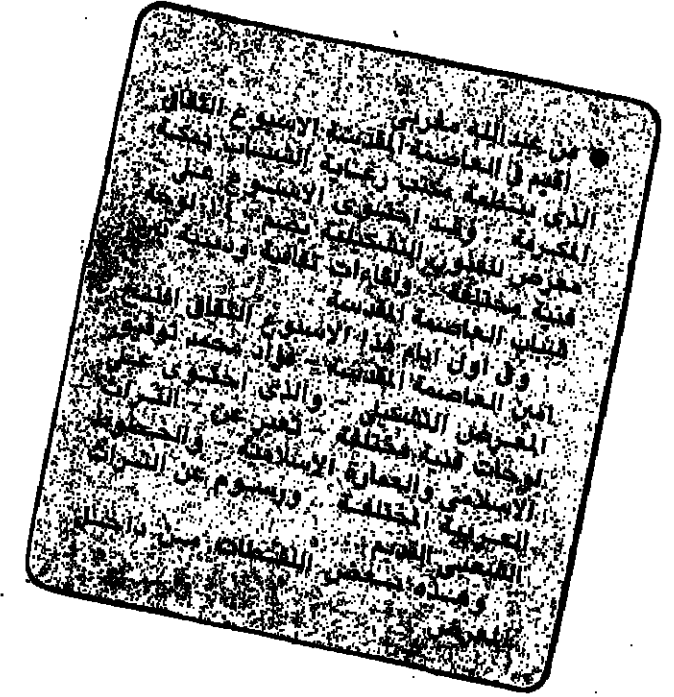 ● من عبدالله مغربي
اقيم في العاصمة المقدسة الاسبوع الثقافي
الذي تنظمة مكتب رعاية الشباب بمكة
المكرمة .. وقد احتوى الاسبوع على
معرض للفنون التشكيلية يضم لوحة
فنية مختلفة .. ولقاءات ثقافية ودينية
شباب العاصمة المقدسة .
وفي اول ايام هذا الاسبوع الثقافي افتتح
امين العاصمة المقدسة - فؤاد محمد توفيق
المعرض التشكيلي - والذي احتوى على
لوحات فنية مختلفة - تعبر عن - التراث
الاسلامي والعمارة الاسلامية - والخطوط
العربية المختلفة - ورسوم عن التراث
الشعبي القديم .
وهذه بعض اللقطات من داخل
المعرض